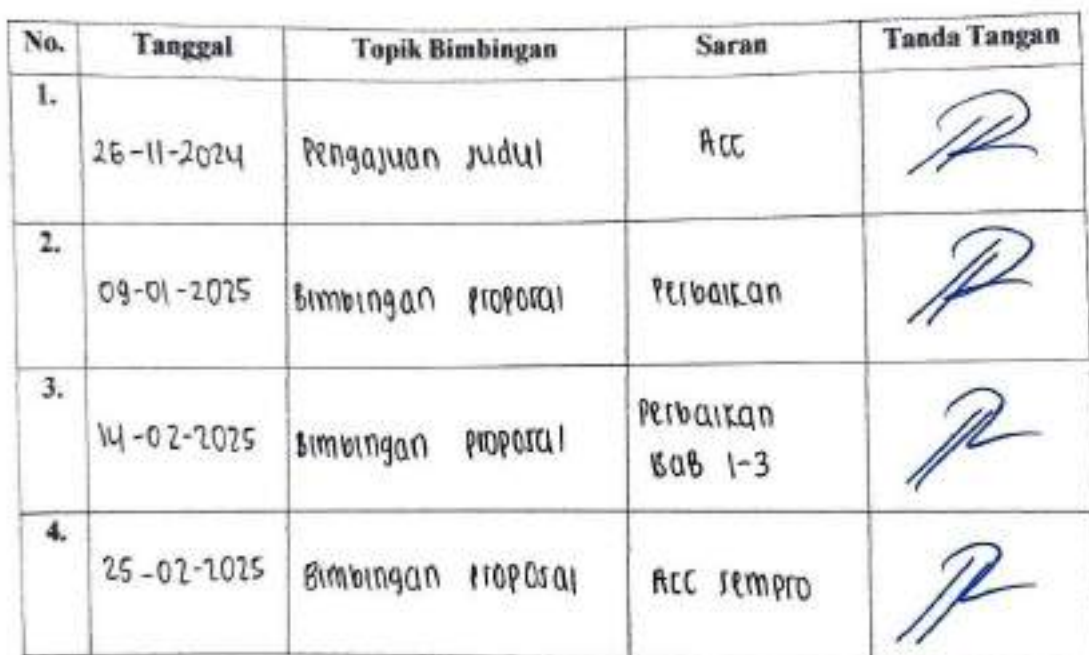 No. Tanggal Topik Bimbingan Saran Tanda Tangan
1. 26-11-2024 Pengajuan judul Acc
2. 09-01-2025 Bimbingan proposal Perbaikan
3. 14-02-2025 Bimbingan proposal Perbaikan
BaB 1-3
4. 25-02-2025 Bimbingan proposal Acc sempro